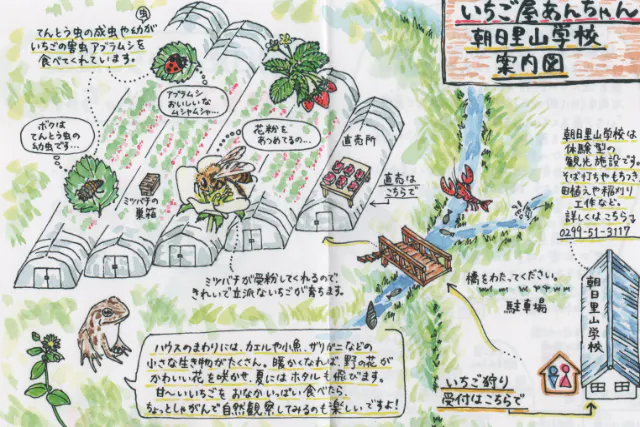 いちご屋あんちゃん
朝日里山学校
案内図
虫
てんとう虫の成虫や幼虫が
いちごの害虫アブラムシを
食べてくれています。
アブラムシ
おいしいな
ムシャムシャ…
ボクは
てんとう虫の
幼虫です…
花粉を
あつめてるの…
直売所
直売は
こちらで
ミツバチの
巣箱
ミツバチが受粉してくれるので、
きれいで立派ないちごが育ちます。
朝日里山学校は
体験型の
観光施設です。
そば打ちやもちつき、
田植えや稲刈り
工作など。
詳しくはこちらで
0299-51-3117
橋をわたってください。
駐車場
朝日里山学校
いちご狩り
受付はこちらで
ハウスのまわりには、カエルや小魚、ザリガニなどの
小さな生き物がたくさん。暖かくなれば、野の花が
かわいい花を咲かせ、夏にはホタルも飛びます。
甘〜いいちごをおなかいっぱい食べたら、
ちょっとしゃがんで自然観察してみるのも楽しいですよ!